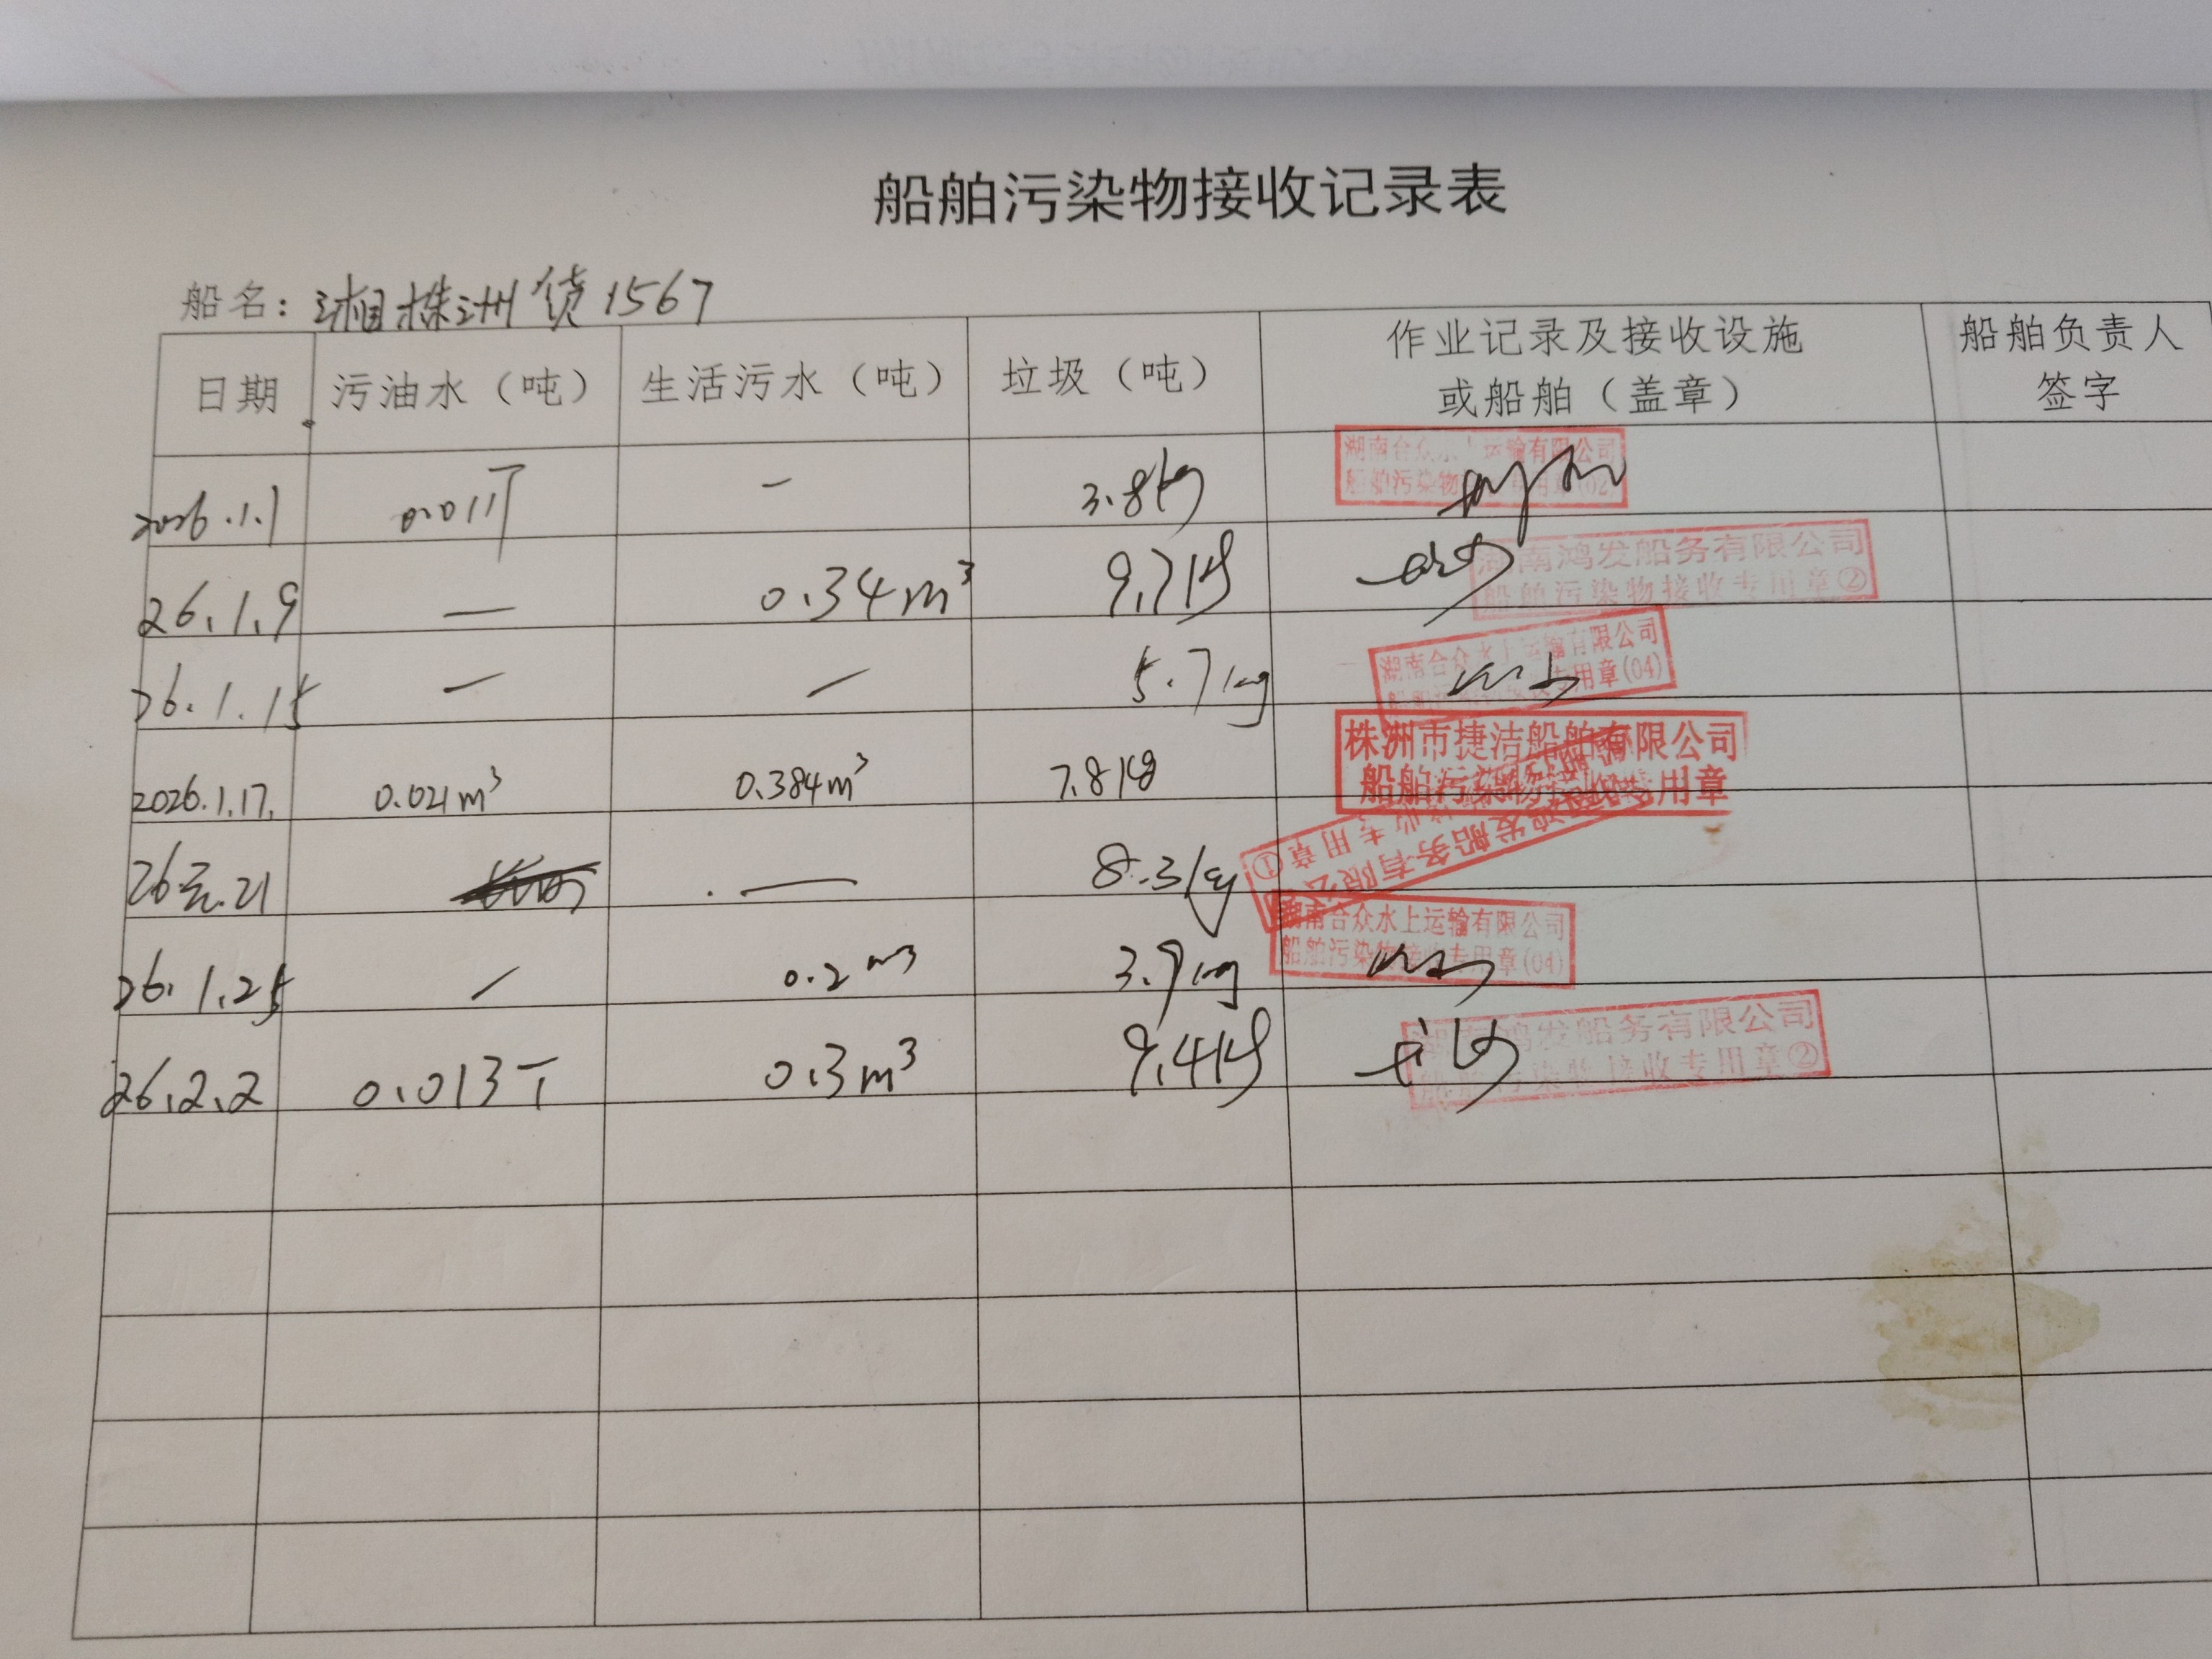 船舶污染物接收记录表
船名：湘株洲货1567
日期 污油水（吨） 生活污水（吨） 垃圾（吨） 作业记录及接收设施或船舶（盖章） 船舶负责人签字
2026.1.1 0.011T — 3.8kg 湖南合众水上运输有限公司
船舶污染物 用章(02)
26.1.9 — 0.34m³ 9.7kg 湖南鸿发船务有限公司
船舶污染物接收专用章②
26.1.15 — — 5.7kg 湖南合众水上运输有限公司
专用章(04)
2026.1.17. 0.021m³ 0.384m³ 7.8kg 株洲市捷洁船舶有限公司
船舶污染物接收专用章
26.元.21 — 8.3kg 鸿发船务有限公
接收专用章①
26.1.25 / 0.2m³ 3.9kg 湖南合众水上运输有限公司
船舶污染物接收专用章(04)
26.2.2 0.013T 0.3m³ 9.4kg 湖南鸿发船务有限公司
船舶污染物接收专用章②